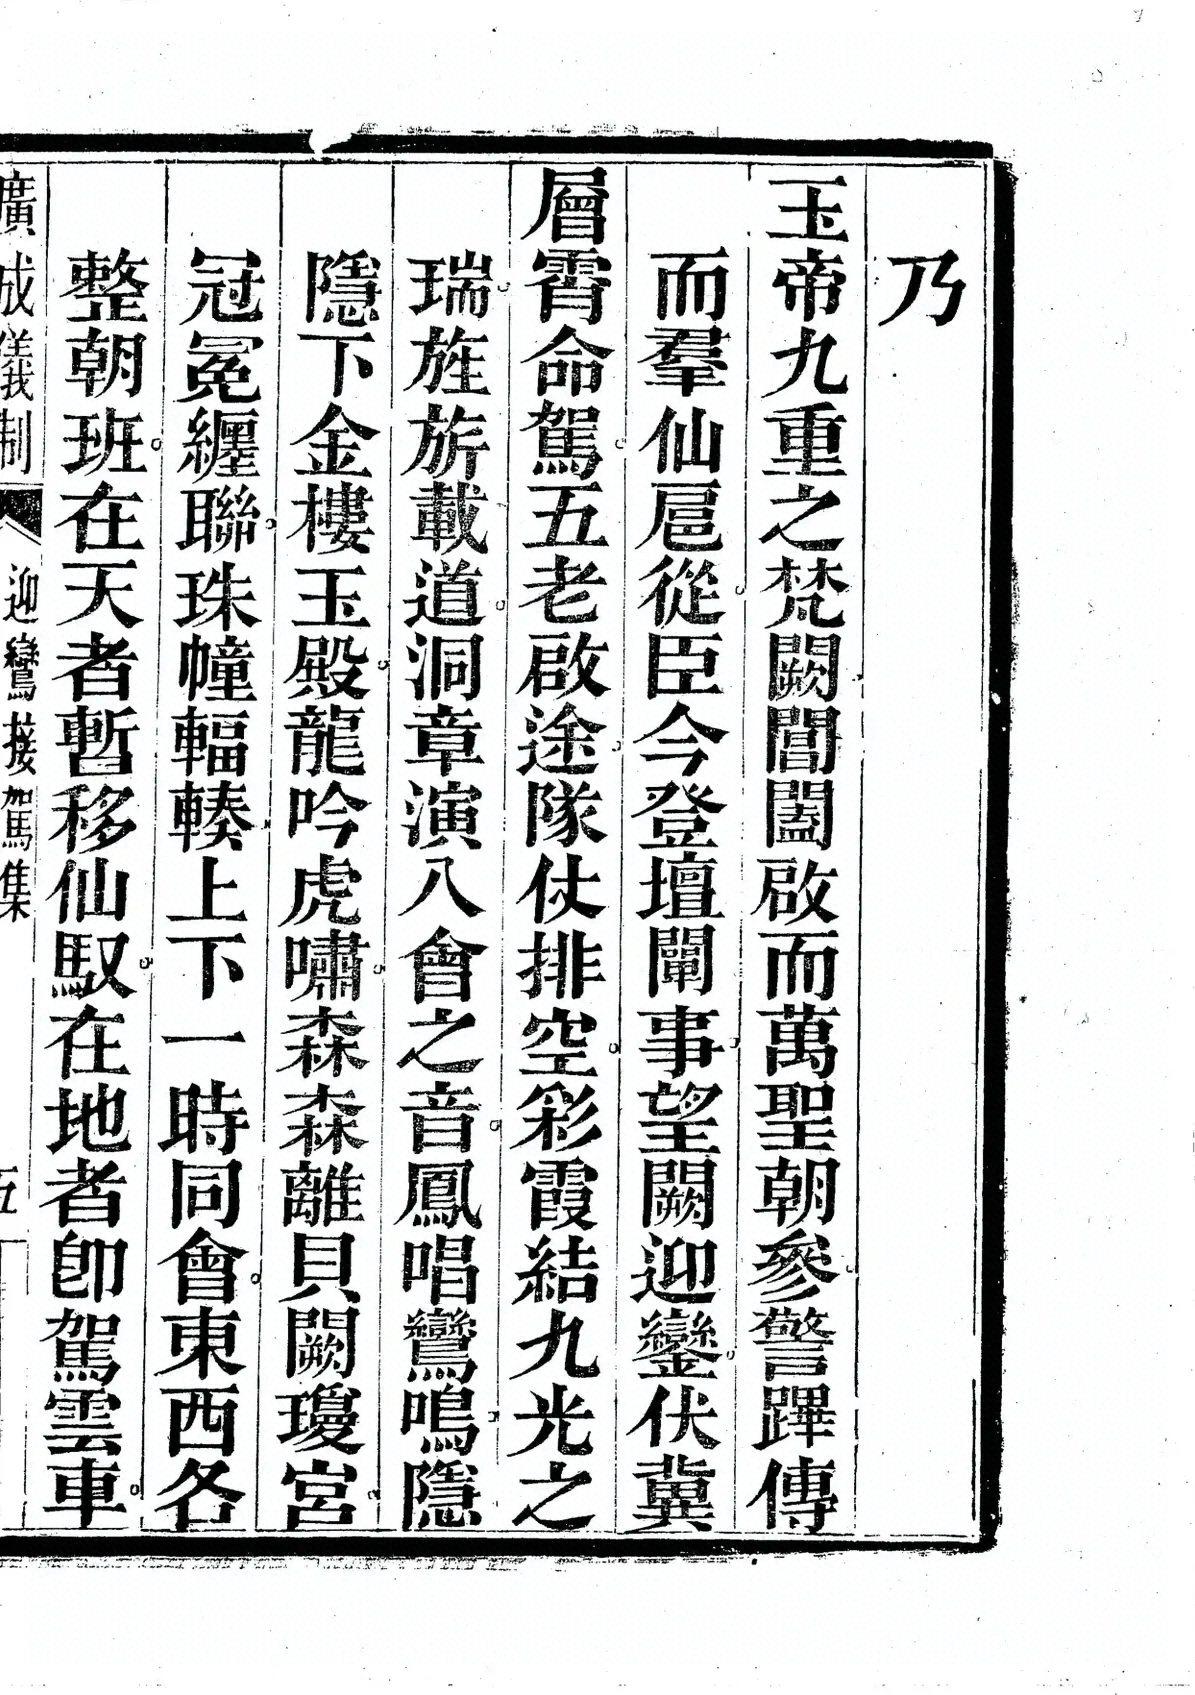 乃
玉帝九重之梵闕閶闔啟而萬聖朝參警蹕傳
而羣仙扈從臣今登壇闡事望闕迎鑾伏冀
層霄命駕五老啟途隊仗排空彩霞結九光之
瑞旌旂載道洞章演八會之音鳳唱鸞鳴隱
隱下金樓玉殿龍吟虎嘯森森離貝闕瓊宮
冠冕纏聯珠幢輻輳上下一時同會東西各
整朝班在天者暫移仙馭在地者卽駕雲車
廣成儀制 迎鸞接駕集 五